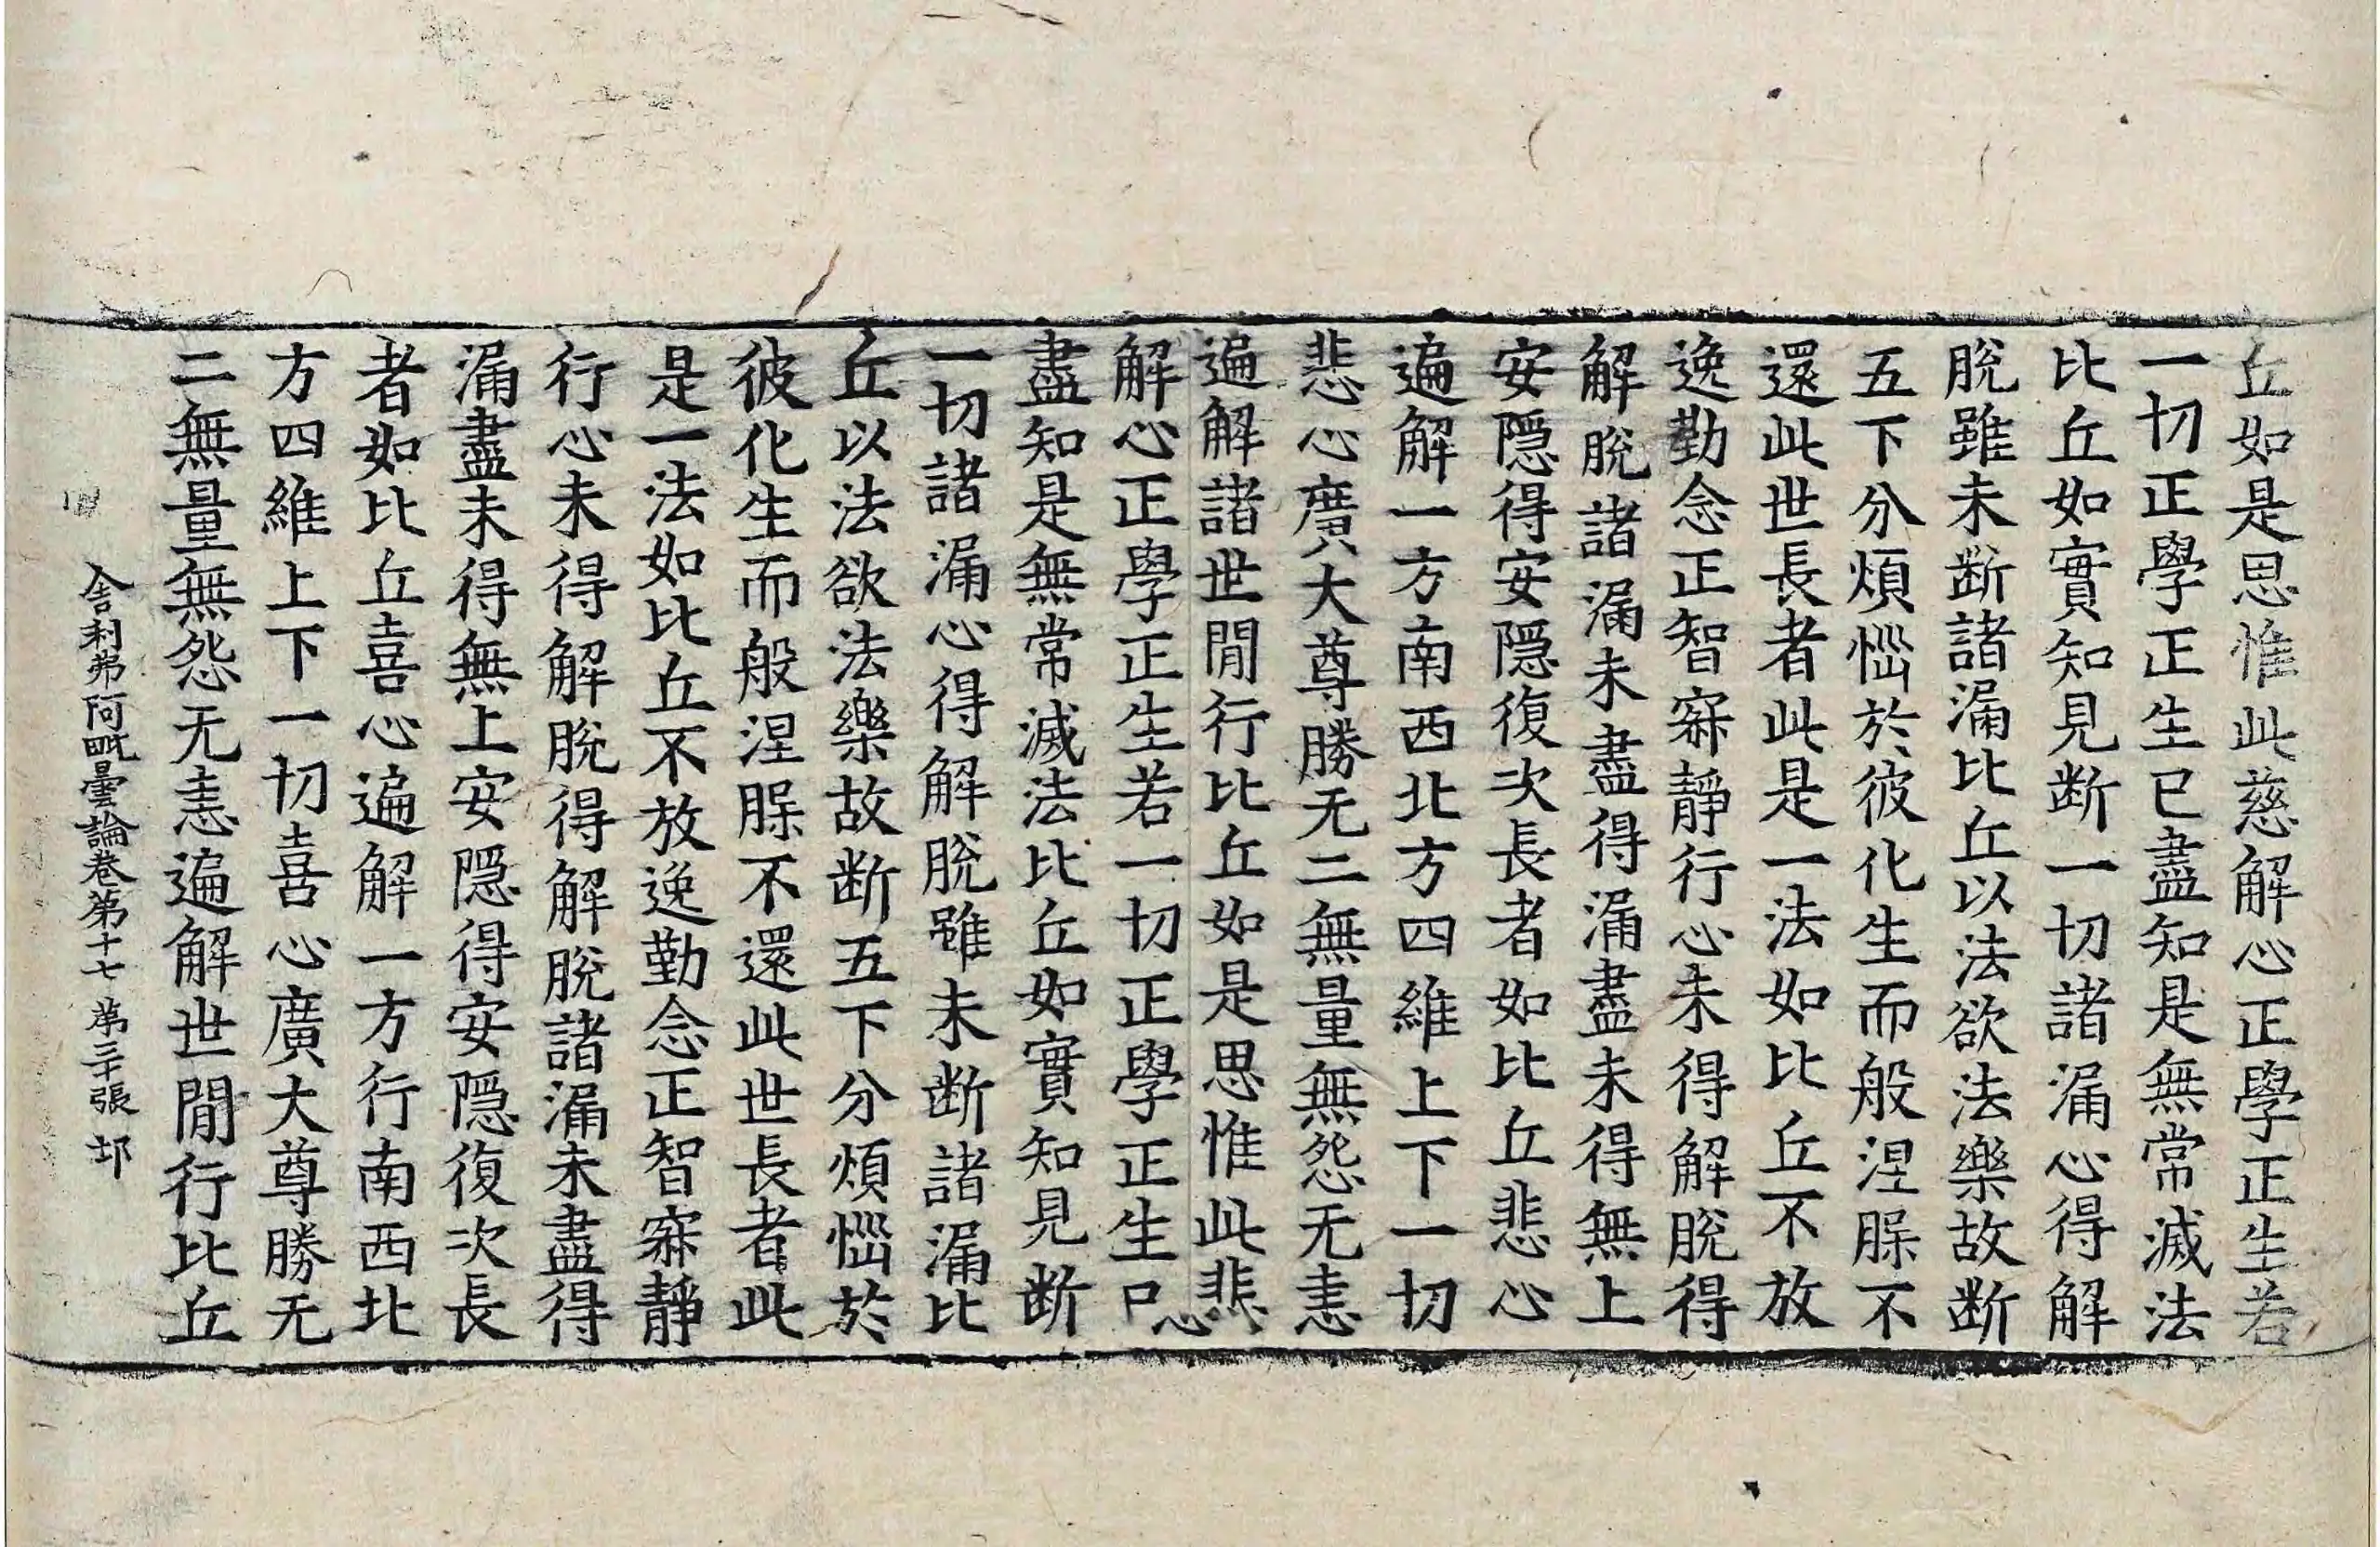 丘如是思惟此慈解心正學正生若
一切正學正生已盡知是無常滅法
比丘如實知見断一切諸漏心得解
脫雖未断諸漏比丘以法欲法樂故断
五下分煩惱於彼化生而般涅槃不
還此世長者此是一法如比丘不放
逸勤念正智寂靜行心未得解脫得
解脫諸漏未盡得漏盡未得無上
安隱得安隱復次長者如比丘悲心
遍解一方南西北方四維上下一切
悲心廣大尊勝无二無量無怨无恚
遍解諸世間行比丘如是思惟此悲
解心正學正生若一切正學正生已
盡知是無常滅法比丘如實知見断
一切諸漏心得解脫雖未断諸漏比
丘以法欲法樂故断五下分煩惱於
彼化生而般涅槃不還此世長者此
是一法如比丘不放逸勤念正智寂靜
行心未得解脫得解脫諸漏未盡得
漏盡未得無上安隱得安隱復次長
者如比丘喜心遍解一方行南西北
方四維上下一切喜心廣大尊勝无
二無量無怨无恚遍解世間行比丘
舍利弗阿毗曇論卷第十七 第三十張